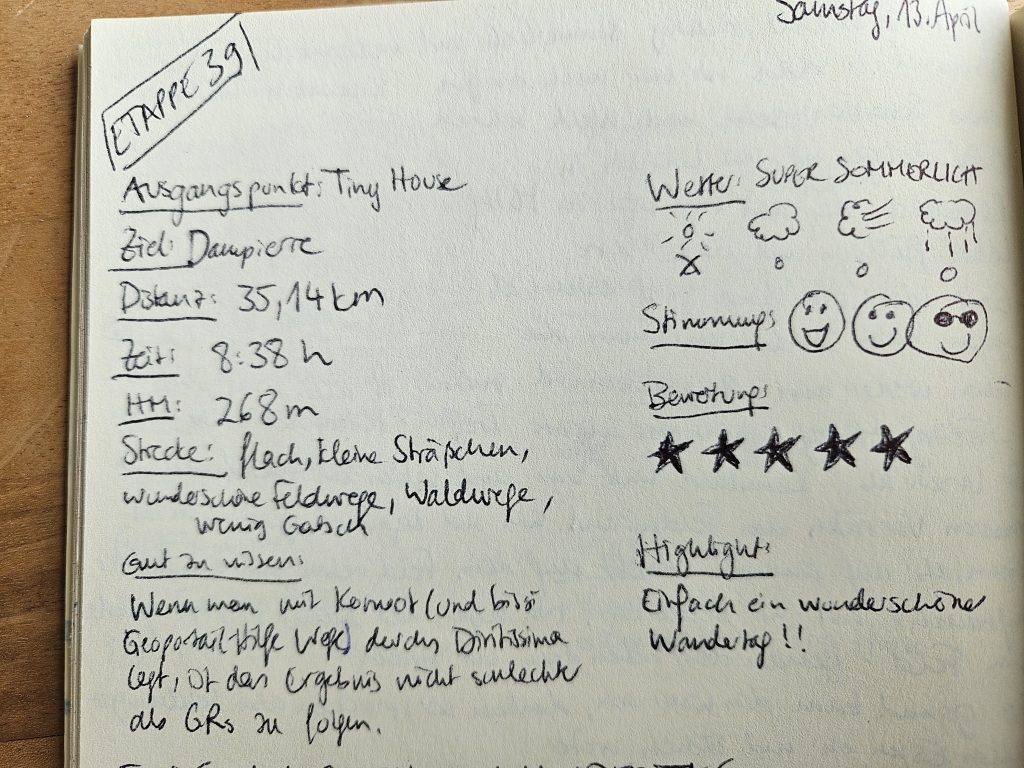 Samstag, 13. April
ETAPPE 39
Ausgangspunkt: Tiny House
Ziel: Dampierre
Distanz: 35,14 km
Zeit: 8:38 h
HM: 268 m
Strecke: flach, kleine Sträßchen,
wunderschöne Feldwege, Waldwege,
wenig Gatsch
Gut zu wissen:
Wenn man mit Komoot (und bissi
Geoportail Hilfe Wege) durchs Diritissima
legt, ist das Ergebnis nicht schlechter
als GRs zu folgen.
Wetter: SUPER SOMMERLICH
Stimmung:
Bewertung:
Highlight:
Einfach ein wunderschöner
Wandertag!!